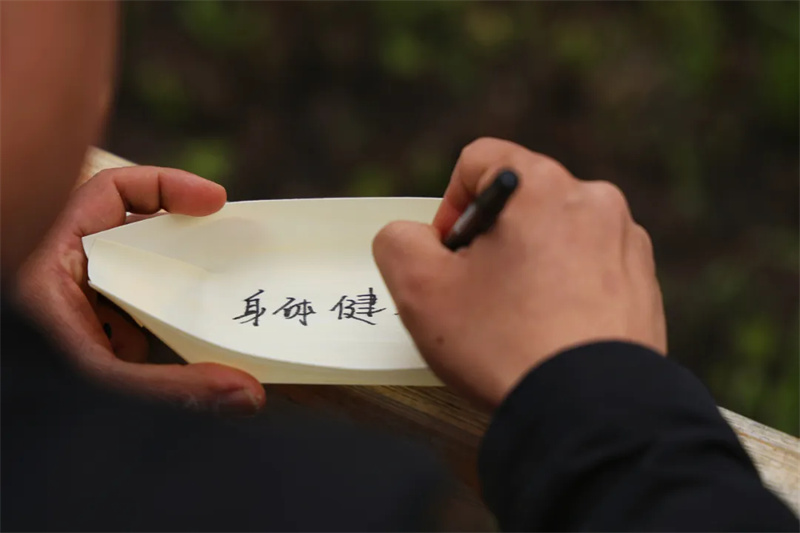 身体健